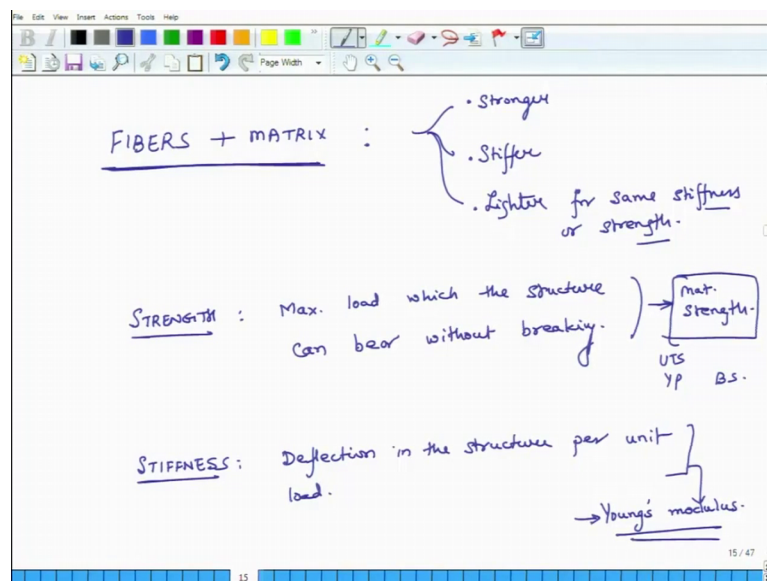 File Edit View Insert Actions Tools Help
B I
Page Width
FIBERS + MATRIX :
• Stronger
• Stiffer
• Lighter for same stiffness
or strength.
STRENGTH : Max. load which the structure
can bear without breaking.
mat.
strength.
UTS
YP BS.
STIFFNESS : Deflection in the structure per unit
load.
→ Young's modulus.
15 / 47
15